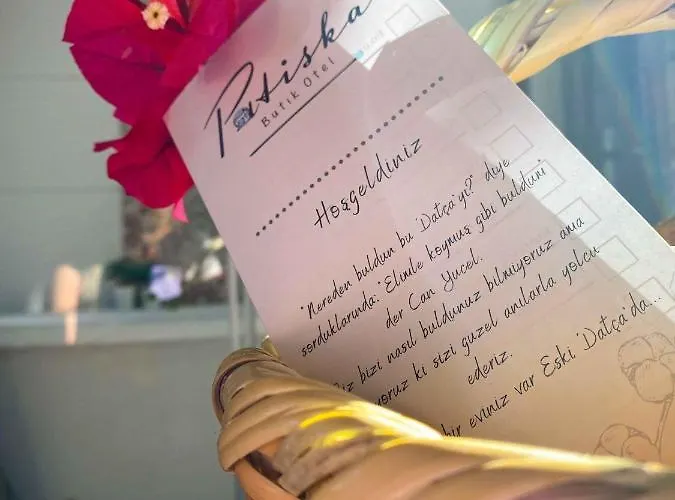 Patiska
Butik Otel
Hoşgeldiniz
"Nereden buldun bu 'Datça'yı?" diye
sorduklarında: "Elimle koymuş gibi buldum"
der Can Yucel.
bizi nasıl buldunuz bilmiyoruz ama
ki sizi guzel anılarla yolcu
ederiz.
bir eviniz var Eski 'Datça'da...